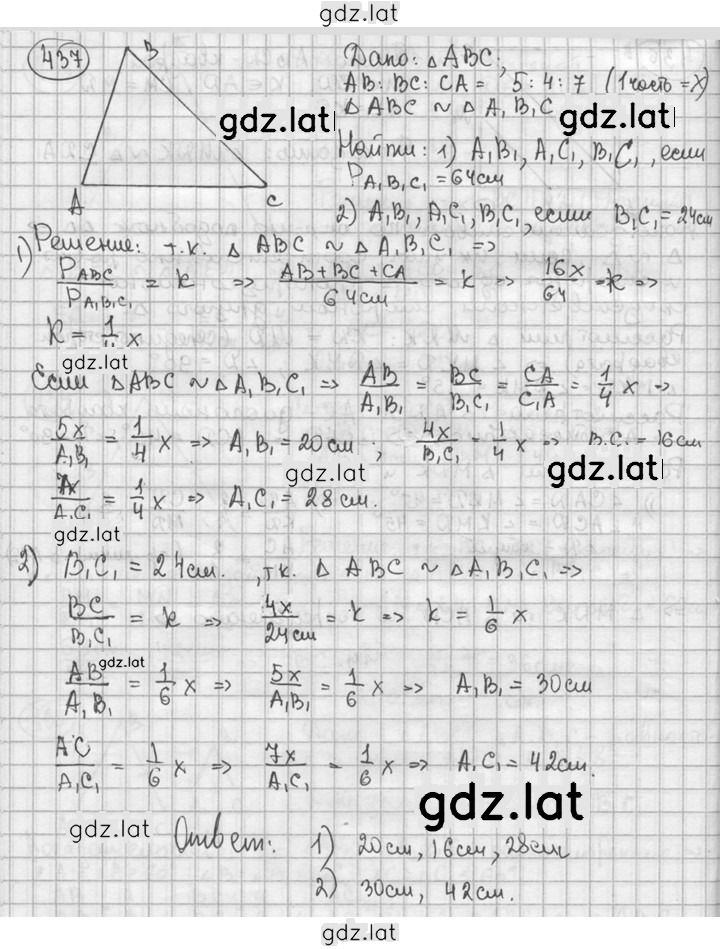 gdz.lat
437
B
A
C
Дано: △ABC;
AB:BC:CA = 5:4:7 (1 часть = x)
△ABC ~ △A₁B₁C
gdz.lat gdz.lat
Найти: 1) A₁B₁, A₁C₁, B₁C₁, если
P_A₁B₁C₁ = 64см
2) A₁B₁, A₁C₁, B₁C₁, если B₁C₁ = 24см
1) Решение: т.к. △ABC ~ △A₁B₁C₁ =>
P_ABC/P_A₁B₁C₁ = k => (AB+BC+CA)/64см = k => 16x/64 = k =>
k = 1/4 x
gdz.lat
Если △ABC ~ △A₁B₁C₁ => AB/A₁B₁ = BC/B₁C₁ = CA/C₁A = 1/4 x =>
5x/A₁B₁ = 1/4 x => A₁B₁ = 20см; 4x/B₁C₁ = 1/4 x => B₁C₁ = 16см
gdz.lat gdz.lat
7x/A₁C₁ = 1/4 x => A₁C₁ = 28см.
gdz.lat
2) B₁C₁ = 24см. , т.к. △ABC ~ △A₁B₁C₁ =>
BC/B₁C₁ = k => 4x/24см = k => k = 1/6 x
gdz.lat
AB/A₁B₁ = 1/6 x => 5x/A₁B₁ = 1/6 x => A₁B₁ = 30см
AC/A₁C₁ = 1/6 x => 7x/A₁C₁ = 1/6 x => A₁C₁ = 42см.
gdz.lat
gdz.lat
Ответ: 1) 20см, 16см, 28см
2) 30см, 42см.
gdz.lat